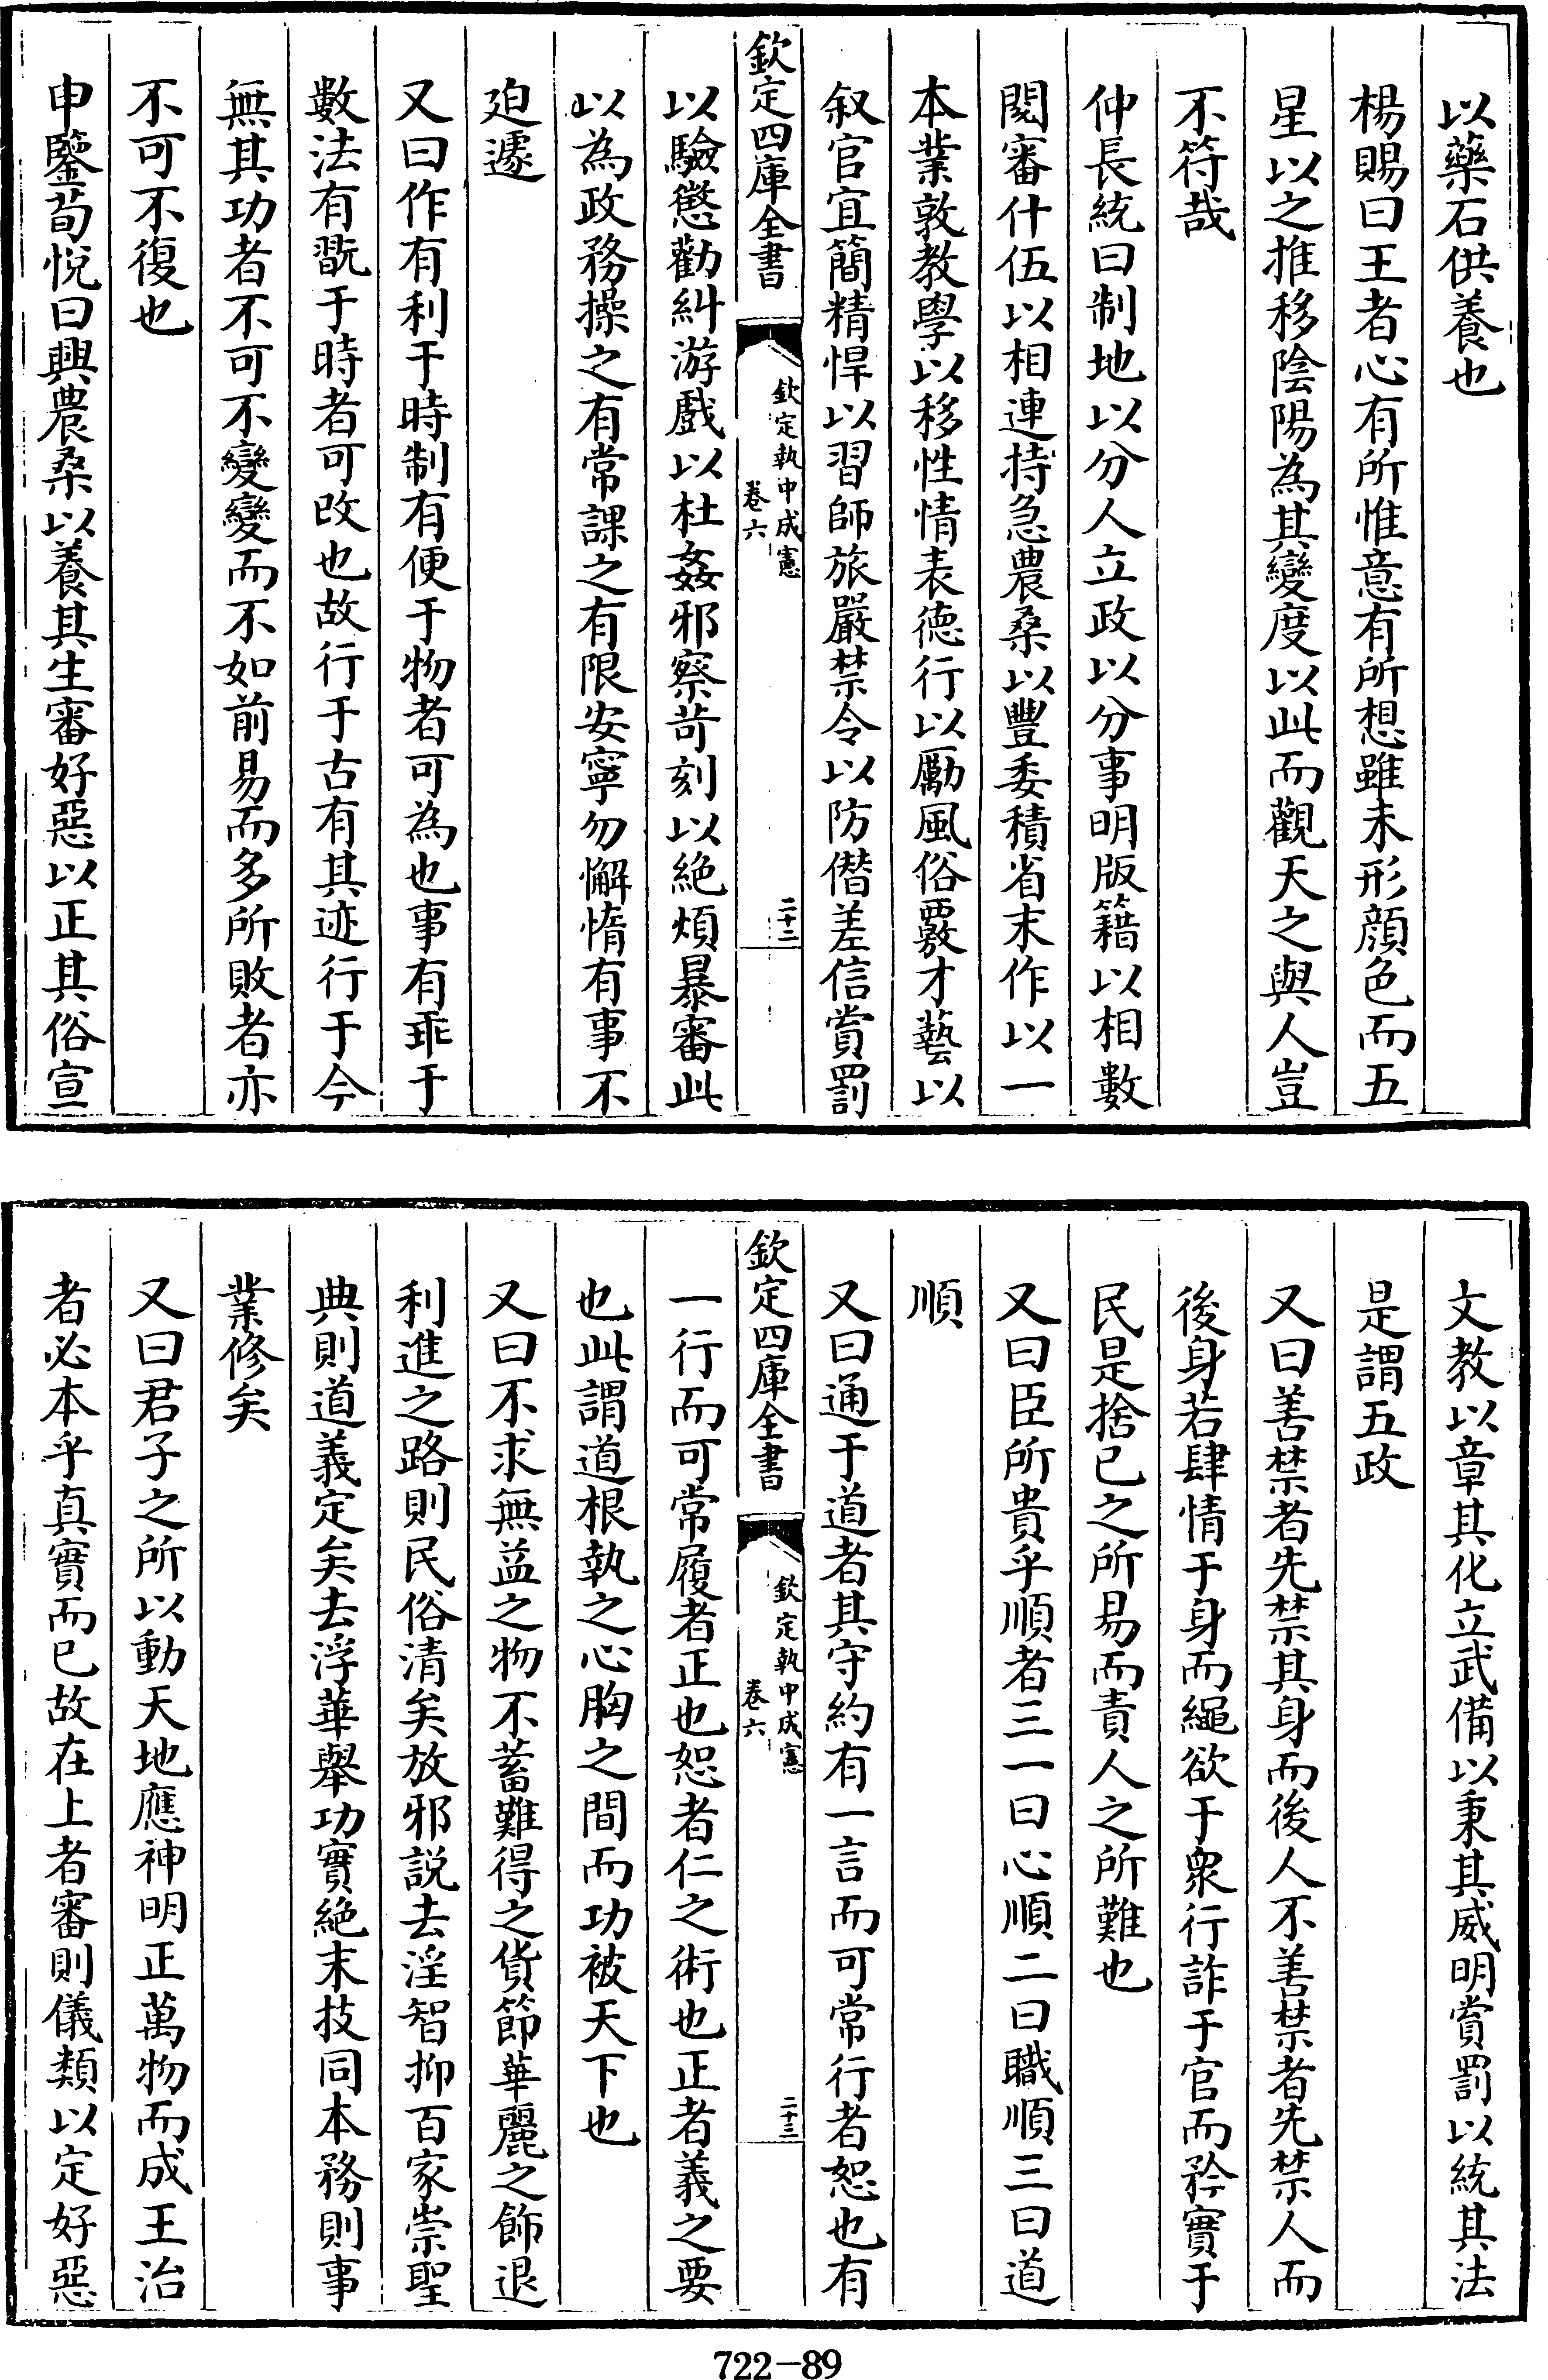 以藥石供養也
楊賜曰王者心有所惟意有所想雖未形顔色而五
星以之推移陰陽為其變度以此而觀天之與人豈
不符哉
仲長統曰制地以分人立政以分事明版籍以相數
閱審什伍以相連持急農桑以豐委積省末作以一
本業敦教學以移性情表徳行以勵風俗覈才藝以
叙官宜簡精悍以習師旅嚴禁令以防僭差信賞罰
欽定四庫全書
欽定執中成憲
卷六
二十二
以驗懲勸糾游戲以杜姦邪察苛刻以絶煩暴審此
以為政務操之有常課之有限安寧勿懈惰有事不
廹遽
又曰作有利于時制有便于物者可為也事有乖于
數法有翫于時者可改也故行于古有其迹行于今
無其功者不可不變變而不如前易而多所敗者亦
不可不復也
申鑒荀悅曰興農桑以養其生審好惡以正其俗宣
文教以章其化立武備以秉其威明賞罰以統其法
是謂五政
又曰善禁者先禁其身而後人不善禁者先禁人而
後身若肆情于身而繩欲于衆行詐于官而矜實于
民是捨已之所易而責人之所難也
又曰臣所貴乎順者三一曰心順二曰職順三曰道
順
又曰通于道者其守約有一言而可常行者恕也有
欽定四庫全書
欽定執中成憲
卷六
二十三
一行而可常履者正也恕者仁之術也正者義之要
也此謂道根執之心胸之間而功被天下也
又曰不求無益之物不蓄難得之貨節華麗之飾退
利進之路則民俗清矣放邪説去淫智抑百家崇聖
典則道義定矣去浮華舉功實絶末技同本務則事
業修矣
又曰君子之所以動天地應神明正萬物而成王治
者必本乎真實而已故在上者審則儀類以定好惡
722-89